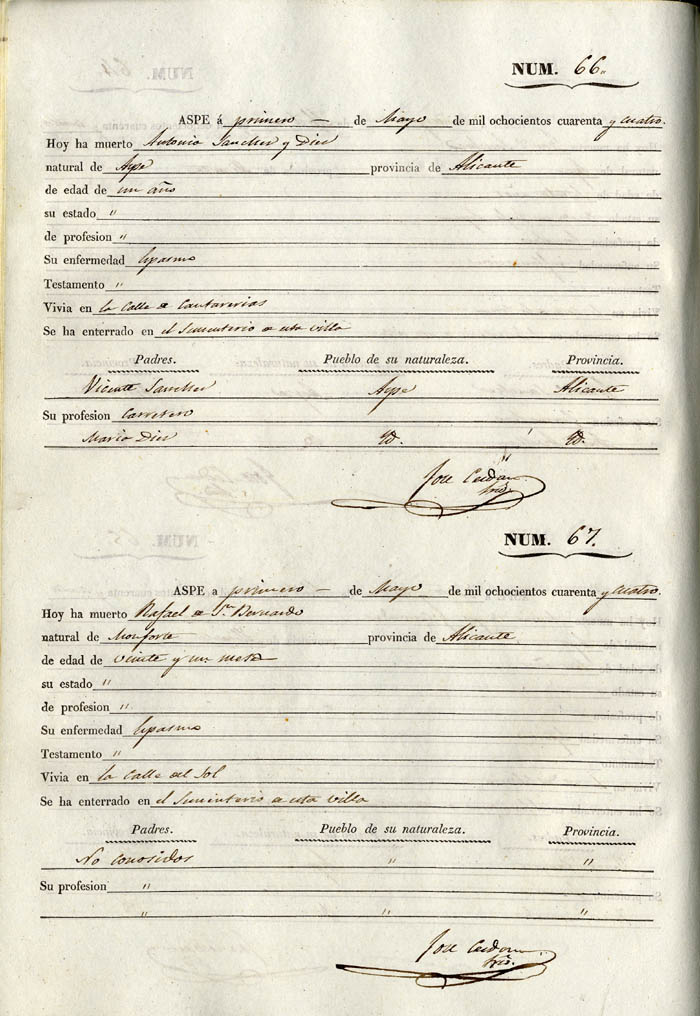 NUM. 66.
ASPE á primero — de Mayo de mil ochocientos cuarenta y cuatro.
Hoy ha muerto Antonio Sancher y Dies
natural de Aspe provincia de Alicante
de edad de un año
su estado "
de profesion "
Su enfermedad Espasmo
Testamento "
Vivia en la Calle de Cantarerias
Se ha enterrado en el Sementerio de esta villa
Padres. Pueblo de su naturaleza. Provincia.
Vicente Sancher Aspe Alicante
Su profesion Carretero
Maria Dies Yd. Yd.
Jose Cerdan
NUM. 67.
ASPE a primero — de Mayo de mil ochocientos cuarenta y cuatro.
Hoy ha muerto Rafael de Sn. Bernardo
natural de Monforte provincia de Alicante
de edad de veinte y un meses
su estado "
de profesion "
Su enfermedad Espasmo
Testamento "
Vivia en la Calle del Sol
Se ha enterrado en el Sementerio de esta villa
Padres. Pueblo de su naturaleza. Provincia.
No conosidos " "
Su profesion "
" " "
Jose Cerdan